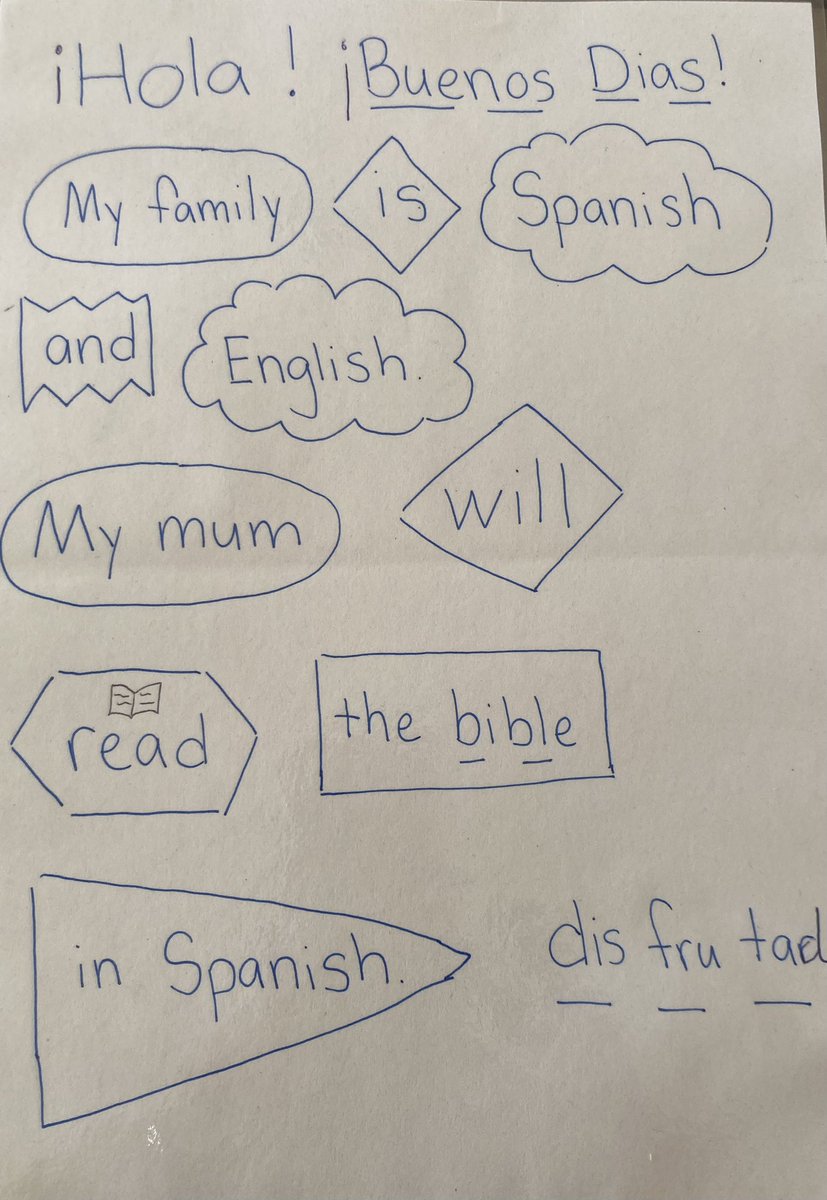 ¡Hola! ¡Buenos Dias!
My family is Spanish
and English.
My mum will
read the bible
in Spanish. dis fru tad